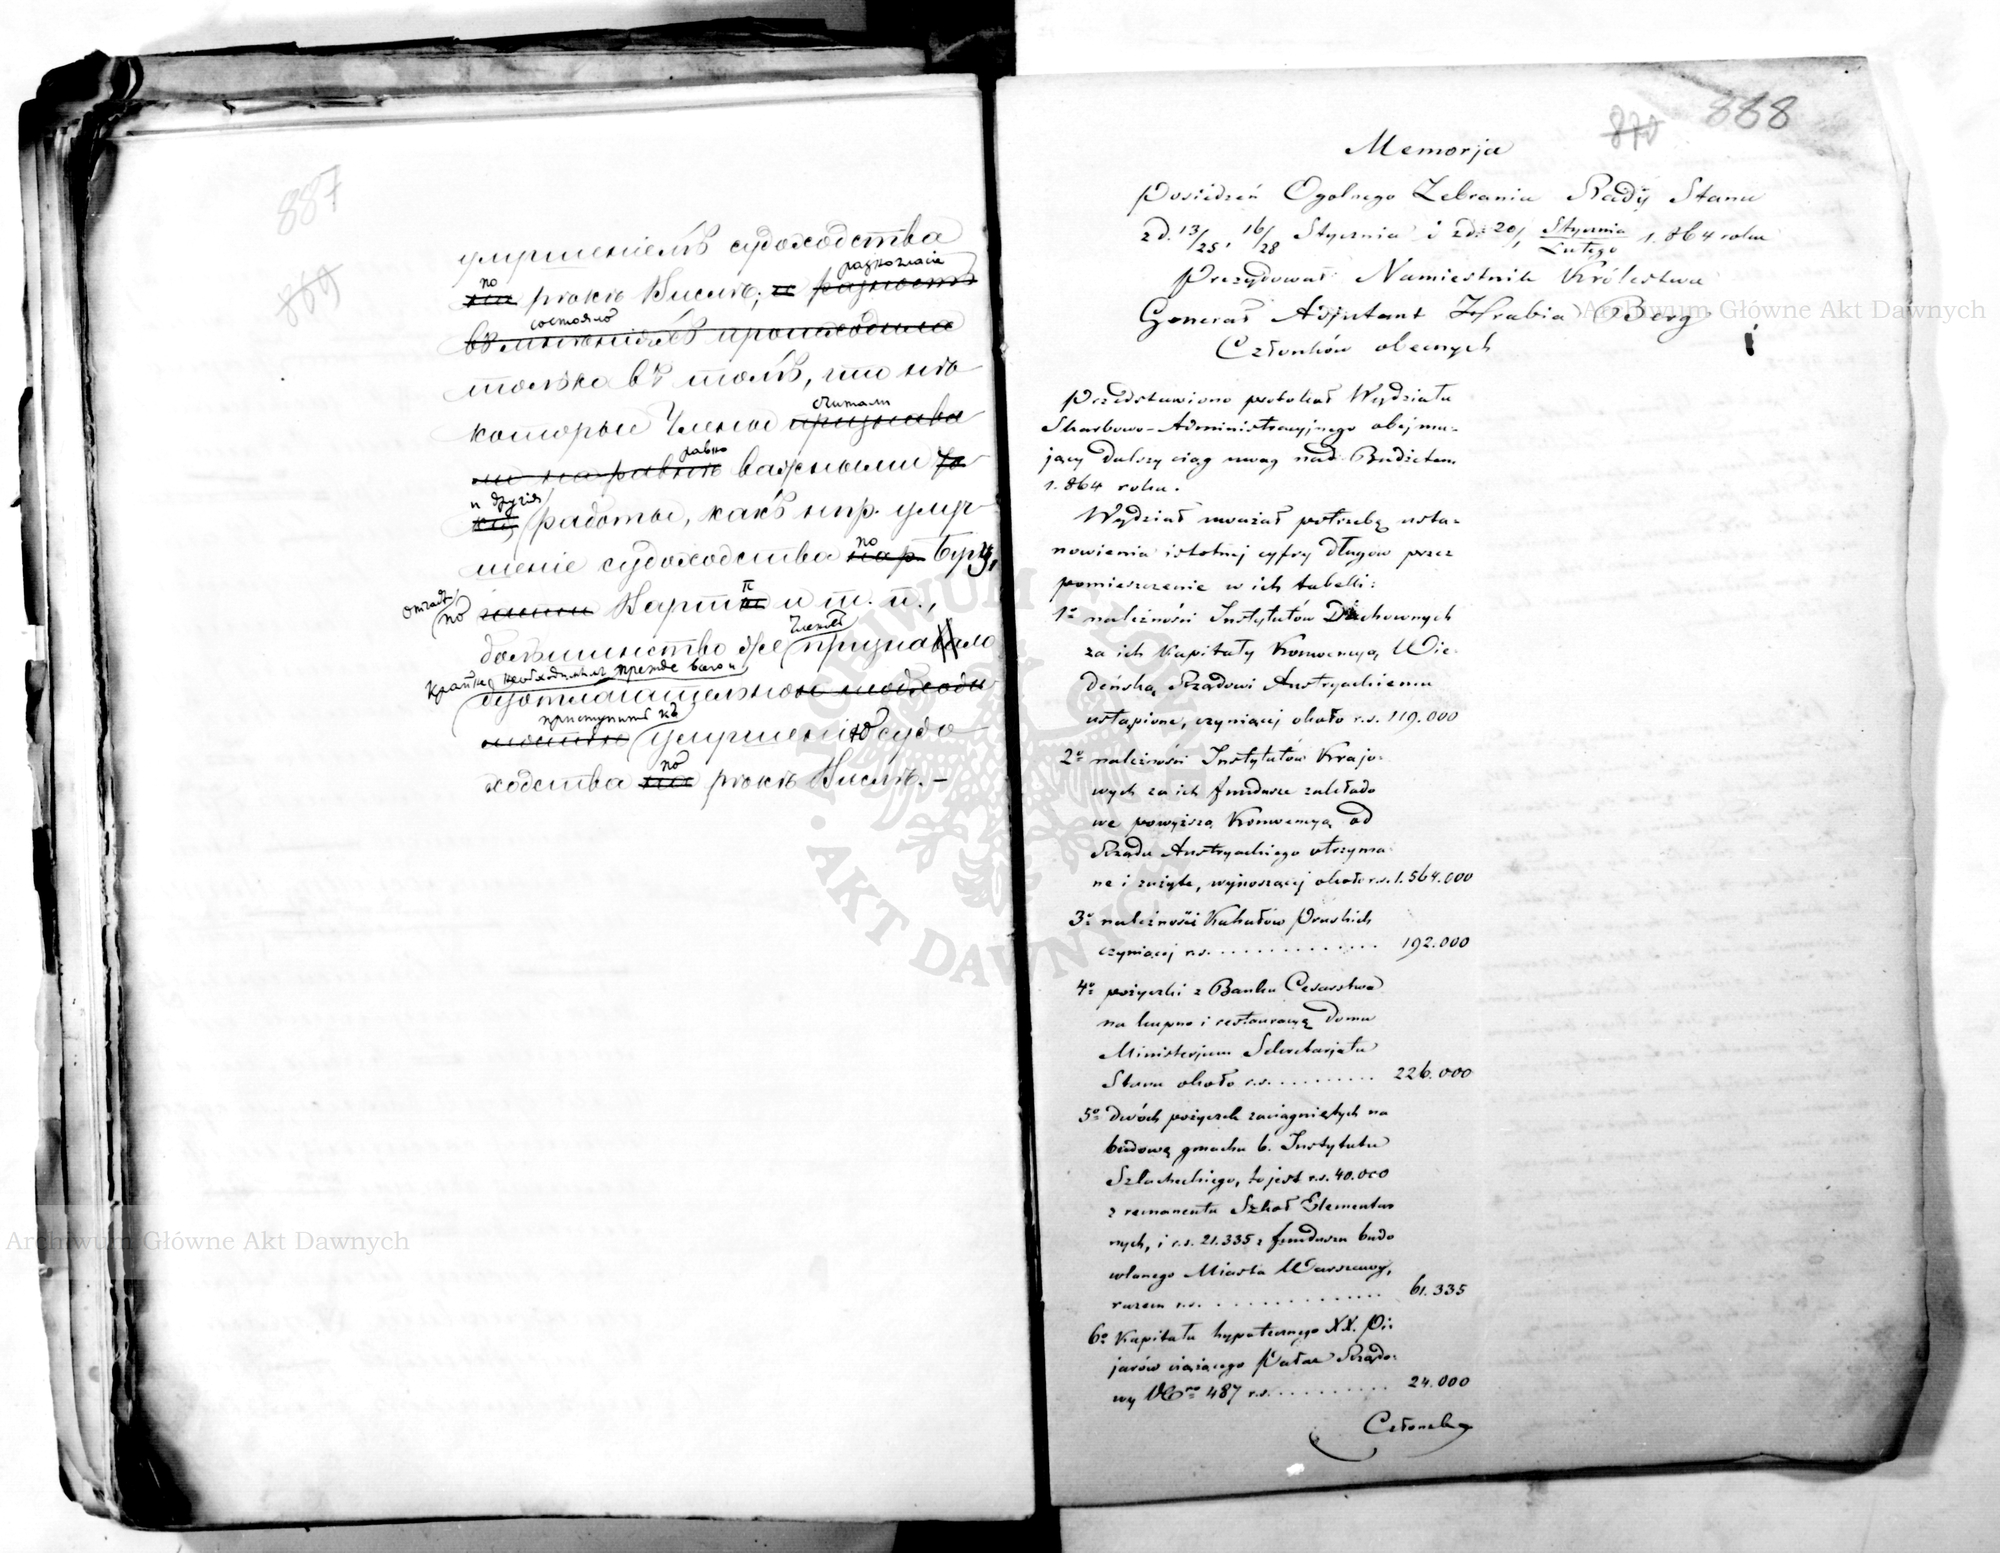 887
869
улучшеніемъ судоходства
по разногласіе
на рѣкѣ Вислѣ; и разность
состояло
въ мнѣніяхъ происходила
только въ томъ, что нѣ-
считали
которые Члены признава
равно
ли на равнѣ важными
и другія
работы, какъ напр. улуч-
шеніе судоходства по Бугу,
по Нартѣ и т. п.,
Членовъ
большинство же признавало
крайне необходимымъ прежде всего
приступить къ
улучшенію судо
по
ходства на рѣкѣ Вислѣ.—
870 888
Memorja
Posiedzeń Ogólnego Zebrania Rady Stanu
z d. 13/25, 16/28 Stycznia i z d. 20/1 Stycznia/Lutego 1.864 roku
Prezydował Namiestnik Królestwa
Generał Adjutant Hrabia Berg
Członków obecnych
Przedstawiono protokół Wydziału
Skarbowo-Administracyjnego obejmu-
jący dalszy ciąg uwag nad Budżetem
1.864 roku.
Wydział uważał potrzebę usta-
nowienia istotnej cyfry długów przez
pomieszczenie w ich tabelli:
1o należności Instytutów Duchownych
za ich Kapitały Konwencyą Wie-
deńską Rządowi Austryackiemu
ustąpione, czyniącej około r.s. 119.000
2o należności Instytutów Krajo-
wych za ich fundusze zakłado
we powyższą Konwencyą od
Rządu Austryackiego otrzyma-
ne i zużyte, wynoszącej około r.s. 1.564.000
3o należności Kahałów Pruskich
czyniącej r.s. . . . . . . . . . . . . . 192.000
4o pożyczki z Banku Cesarstwa
na kupno i restauracyę domu
Ministerjum Sekretarjatu
Stanu około r.s. . . . . . . . . . 226.000
5o dwóch pożyczek zaciągniętych na
budowę gmachu b. Instytutu
Szlacheckiego, to jest r.s. 40.000
z remanentu Szkół Elementar
nych, i r.s. 21.335 z funduszu budo
wlanego Miasta Warszawy,
razem r.s. . . . . . . . . . . . . . 61.335
6o Kapitału hypotecznego XX. Pi-
jarów ciążącego Pałac Rządo-
wy No 487 r.s. . . . . . . . . . 24.000
Członek
Archiwum Główne Akt Dawnych
Archiwum Główne Akt Dawnych
ARCHIWUM GŁÓWNE AKT DAWNYCH